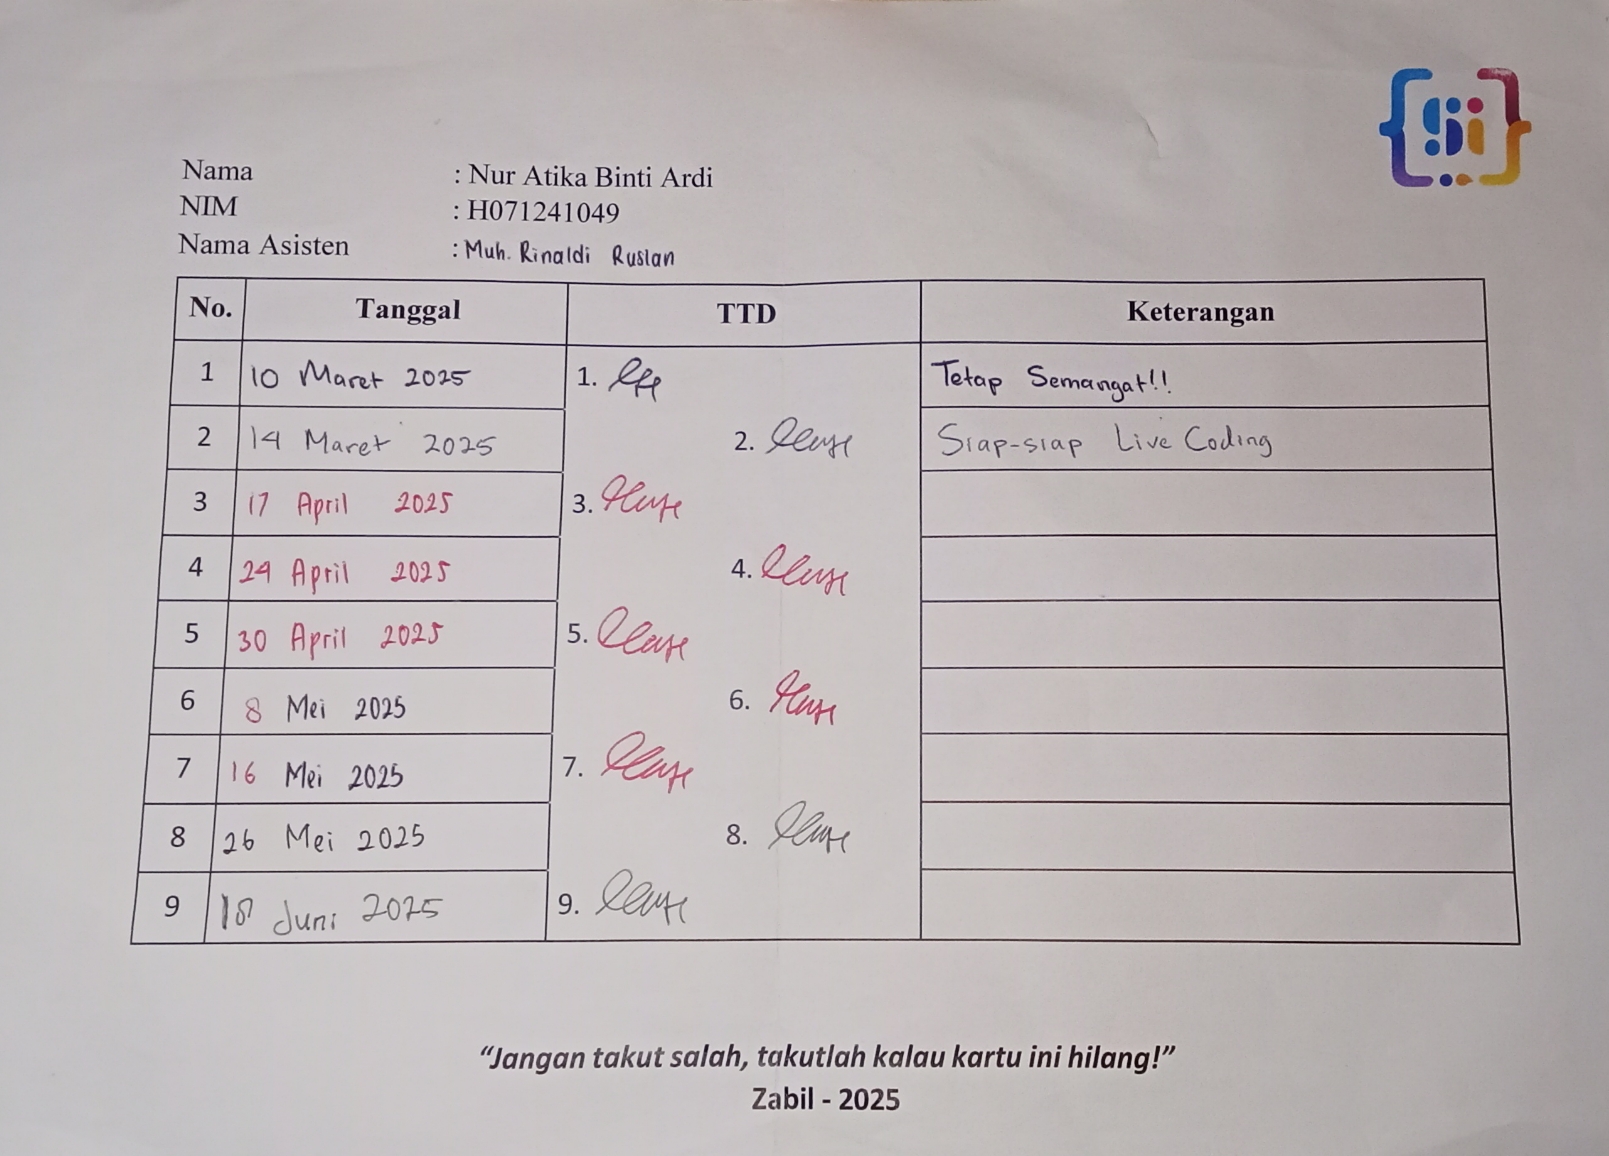 Nama : Nur Atika Binti Ardi
NIM : H071241049
Nama Asisten : Muh. Rinaldi Ruslan
No. Tanggal TTD Keterangan
1 10 Maret 2025 1. Tetap Semangat!!
2 14 Maret 2025 2. Siap-siap Live Coding
3 17 April 2025 3.
4 24 April 2025 4.
5 30 April 2025 5.
6 8 Mei 2025 6.
7 16 Mei 2025 7.
8 26 Mei 2025 8.
9 Juni 2025 9.
“Jangan takut salah, takutlah kalau kartu ini hilang!”
Zabil - 2025